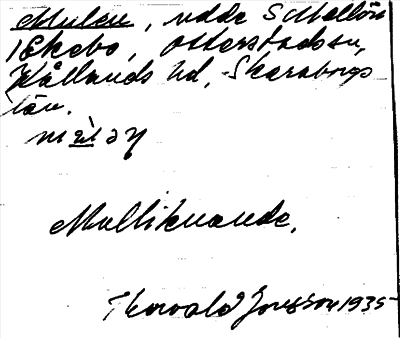 Mulen, udde S Mellön
1 Ekebo, Otterstads sn,
Kållands hd, Skaraborgs
län.
Mulliknande.
Thorvald Jonsson 1935